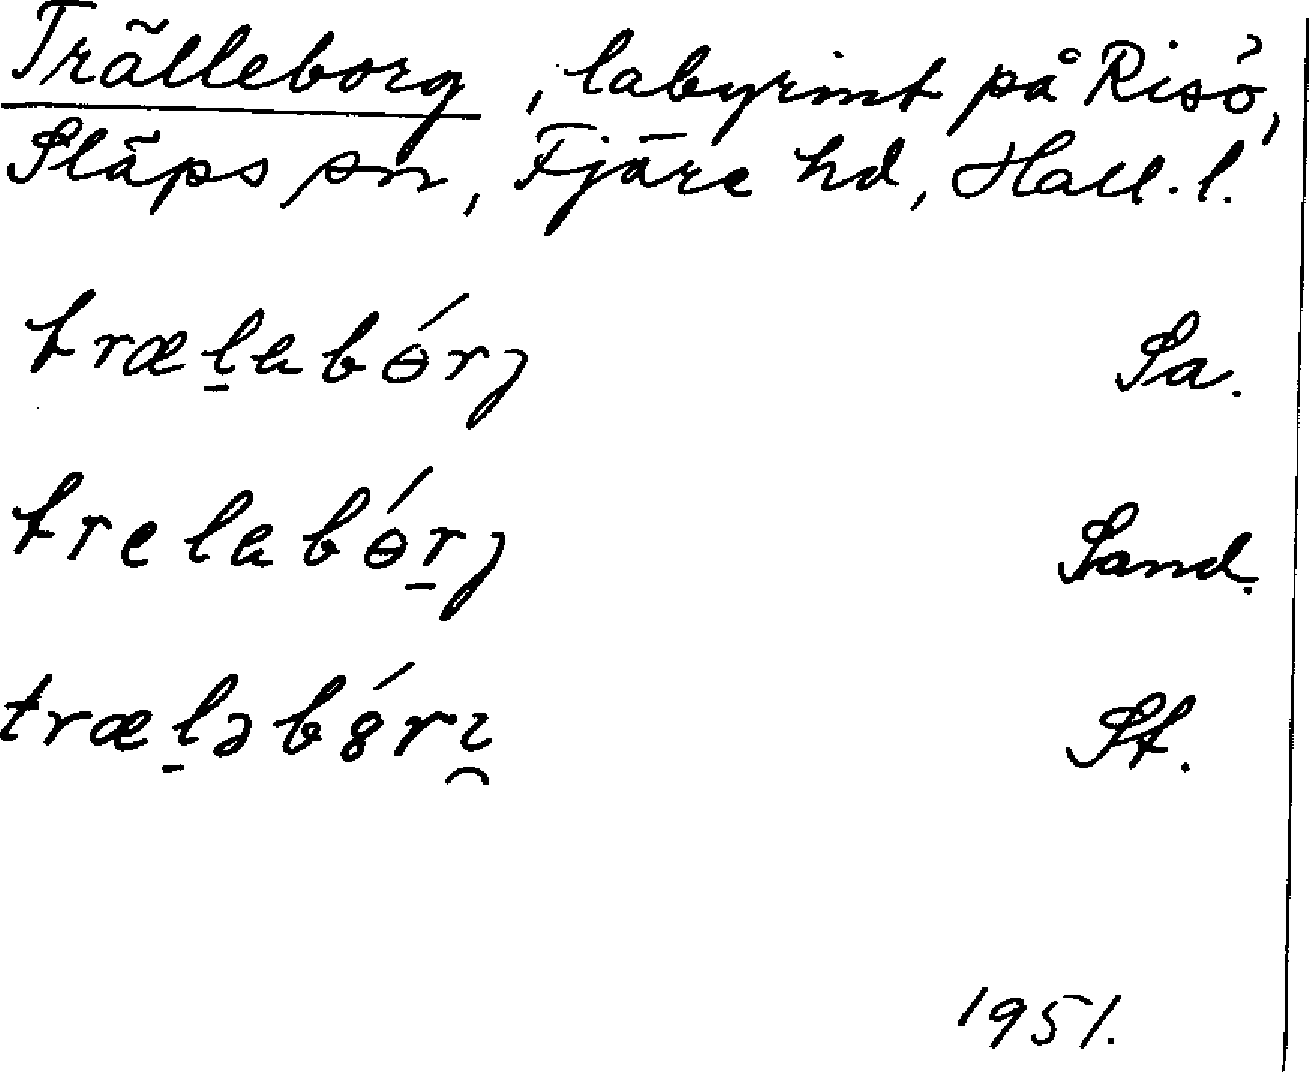 Trälleborg, labyrint på Risö,
Släps sn, Fjäre hd, Hall. l.
træl̠abɵ́rȷ Sa.
trelabɵ́r̠ȷ Sand.
træl̠əbȣ́rı̯ St.
1951.